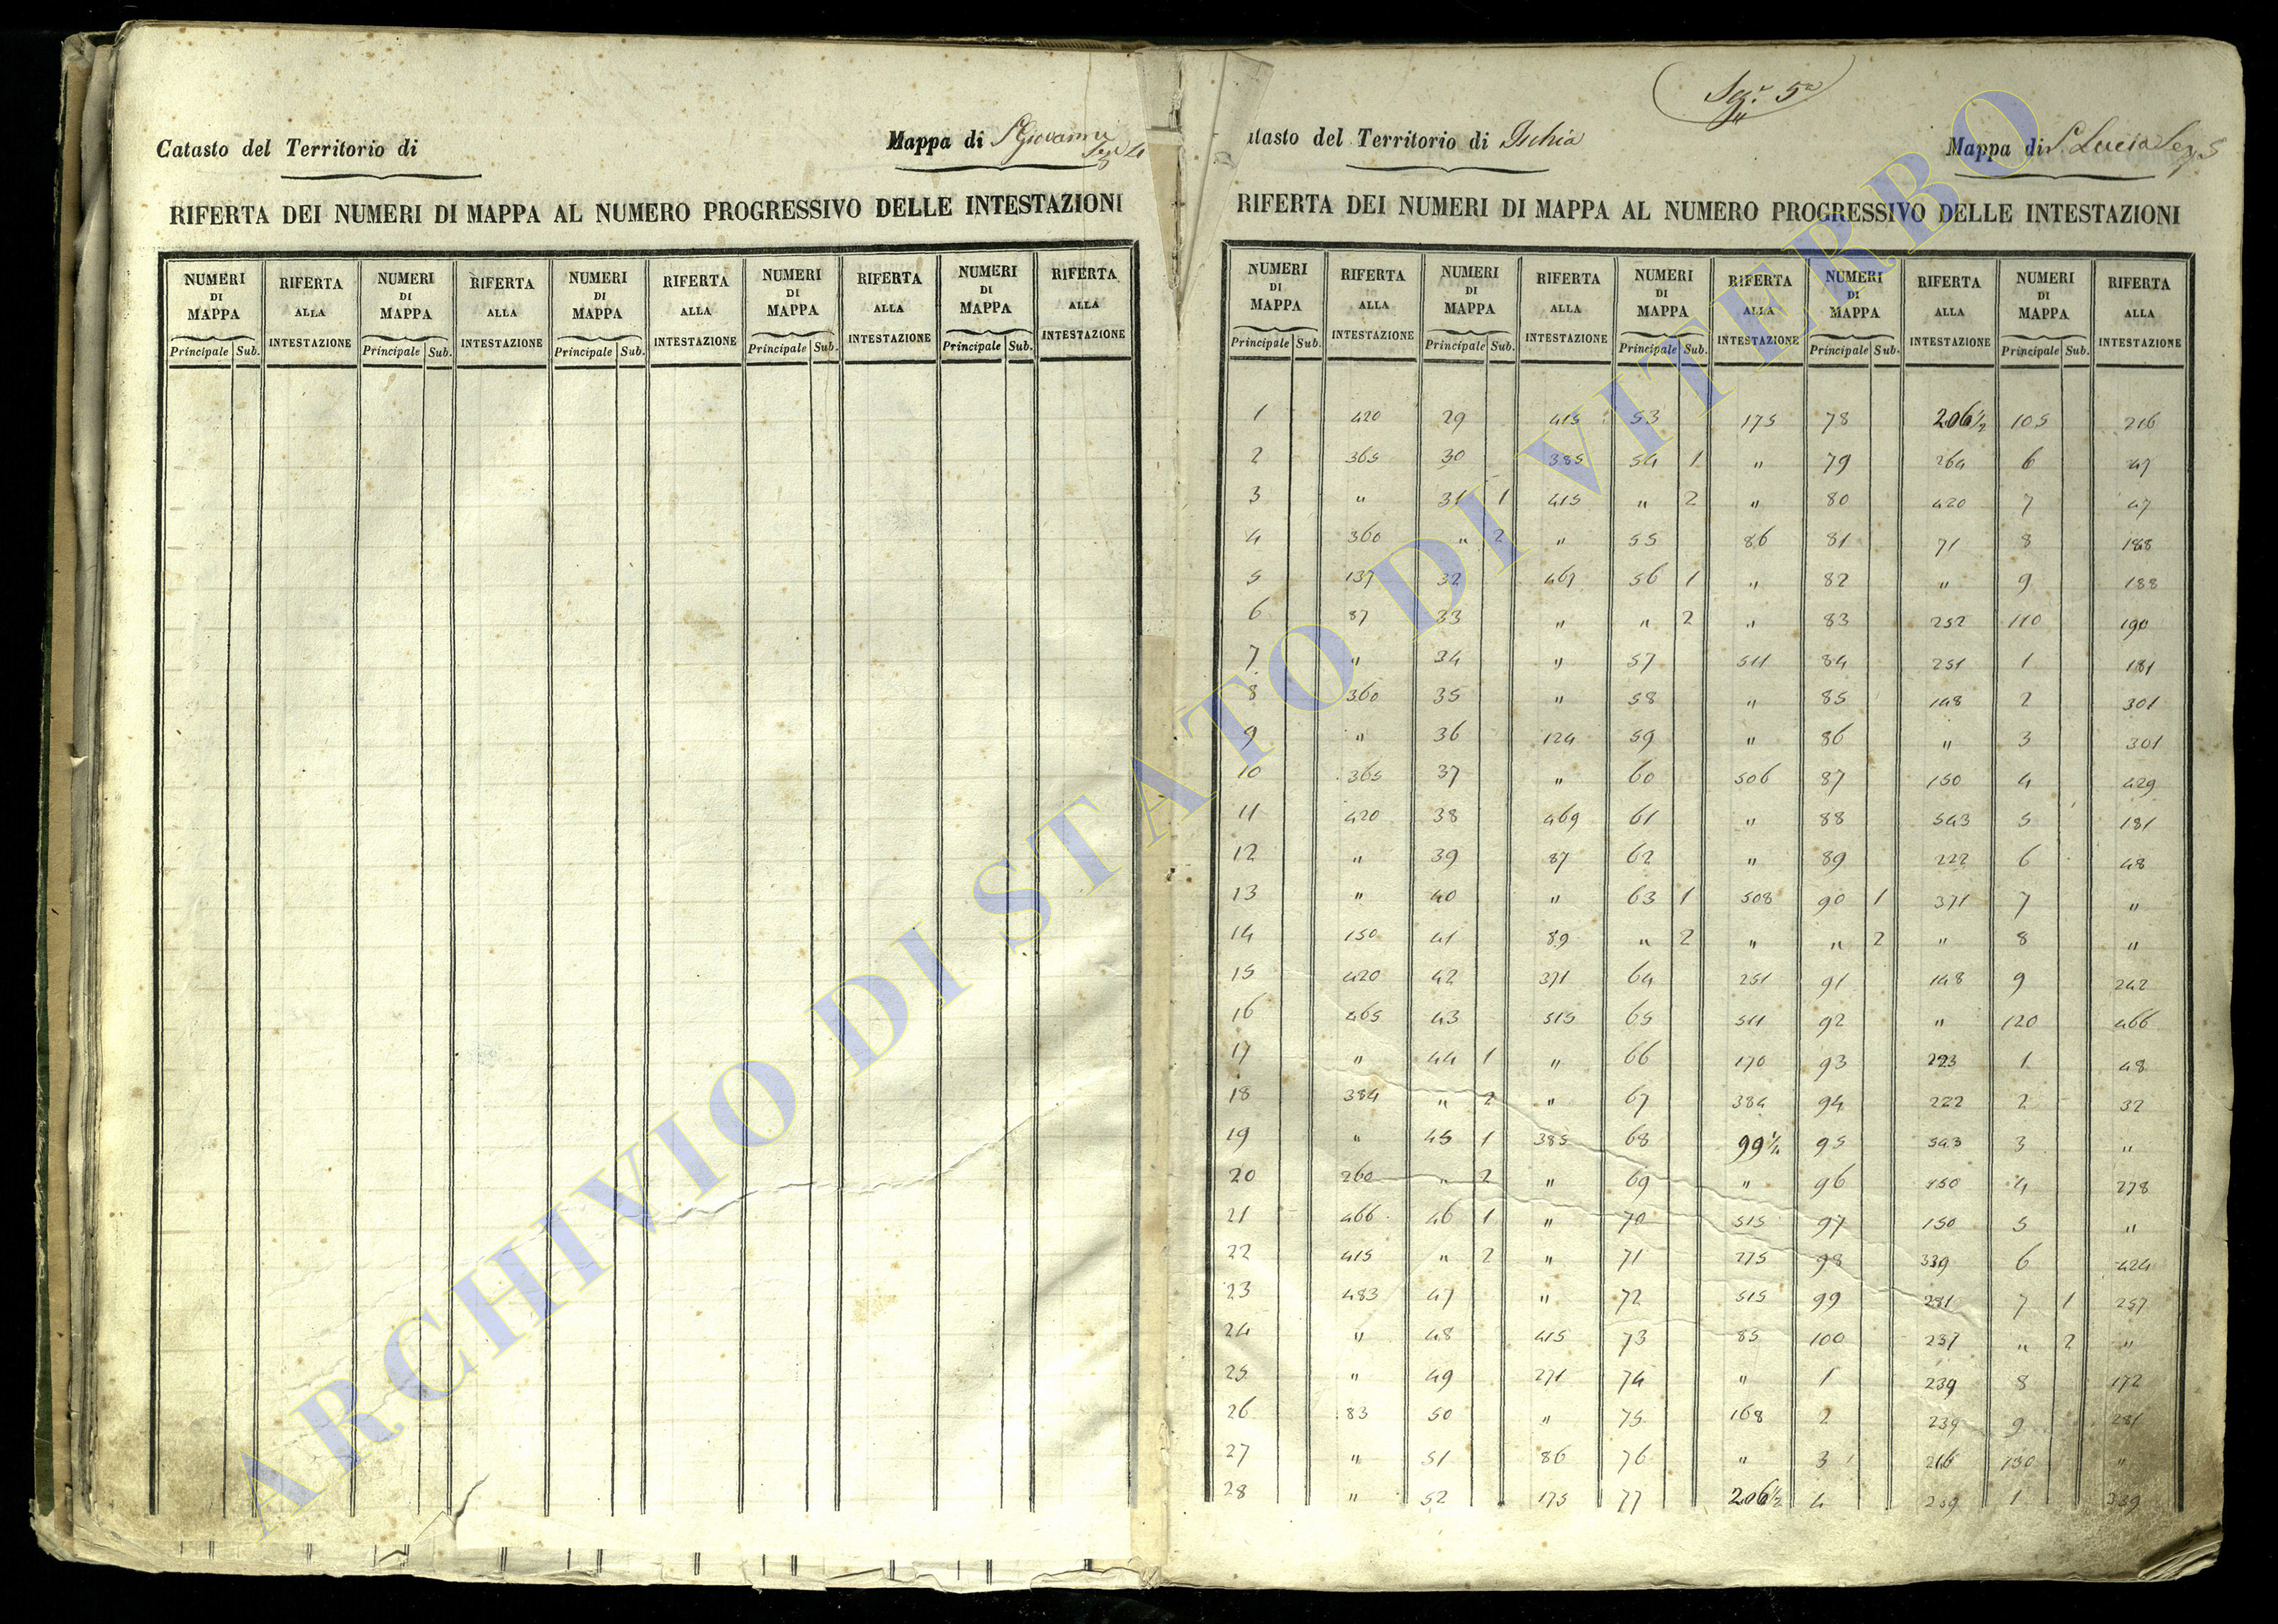 Catasto del Territorio di
Mappa di S. Giovanni
Sez. 4
RIFERTA DEI NUMERI DI MAPPA AL NUMERO PROGRESSIVO DELLE INTESTAZIONI
NUMERI DI MAPPA RIFERTA ALLA INTESTAZIONE NUMERI DI MAPPA RIFERTA ALLA INTESTAZIONE NUMERI DI MAPPA RIFERTA ALLA INTESTAZIONE NUMERI DI MAPPA RIFERTA ALLA INTESTAZIONE NUMERI DI MAPPA RIFERTA ALLA INTESTAZIONE
Principale Sub. Principale Sub. Principale Sub. Principale Sub. Principale Sub.
Sez. 5a
atasto del Territorio di Ischia
Mappa di S. Lucia Sez. 5
RIFERTA DEI NUMERI DI MAPPA AL NUMERO PROGRESSIVO DELLE INTESTAZIONI
NUMERI DI MAPPA RIFERTA ALLA INTESTAZIONE NUMERI DI MAPPA RIFERTA ALLA INTESTAZIONE NUMERI DI MAPPA RIFERTA ALLA INTESTAZIONE NUMERI DI MAPPA RIFERTA ALLA INTESTAZIONE NUMERI DI MAPPA RIFERTA ALLA INTESTAZIONE
Principale Sub. Principale Sub. Principale Sub. Principale Sub. Principale Sub.
1 420 29 415 53 175 78 206 1/2 105 216
2 365 30 385 54 1 " 79 264 6 47
3 " 31 1 415 " 2 " 80 420 7 47
4 360 " 2 " 55 86 81 71 8 188
5 137 32 467 56 1 " 82 " 9 188
6 87 33 " " 2 " 83 252 110 190
7 " 34 " 57 511 84 251 1 181
8 360 35 " 58 " 85 148 2 301
9 " 36 124 59 " 86 " 3 301
10 365 37 " 60 506 87 150 4 429
11 420 38 469 61 " 88 543 5 181
12 " 39 87 62 " 89 222 6 48
13 " 40 " 63 1 508 90 1 371 7 "
14 150 41 89 " 2 " " 2 " 8 "
15 420 42 371 64 251 91 148 9 242
16 465 43 515 65 511 92 " 120 466
17 " 44 1 " 66 170 93 223 1 48
18 384 " 2 " 67 384 94 222 2 32
19 " 45 1 385 68 99 1/4 95 543 3 "
20 260 " 2 " 69 " 96 150 4 278
21 466 46 1 " 70 515 97 150 5 "
22 415 " 2 " 71 275 98 339 6 424
23 483 47 " 72 515 99 281 7 1 257
24 " 48 415 73 85 100 237 " 2 "
25 " 49 271 74 " 1 239 8 172
26 83 50 " 75 168 2 239 9 281
27 " 51 86 76 " 3 216 130 "
28 " 52 175 77 206 1/2 4 239 1 339
ARCHIVIO DI STATO DI VITERBO